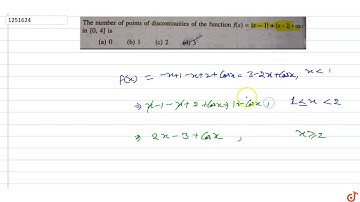 1251624
The number of points of discontinuities of the function f(x) = |x – 1| + |x – 2| + cos x
in [0, 4] is
(a) 0 (b) 1 (c) 2 (d) 3
f(x) = -x+1-x+2+cosx = 3-2x+cosx, x<1
⇒ x-1-x+2+cosx ⇒ 1+cosx, 1≤x<2
⇒ 2x-3+cosx, x≥2